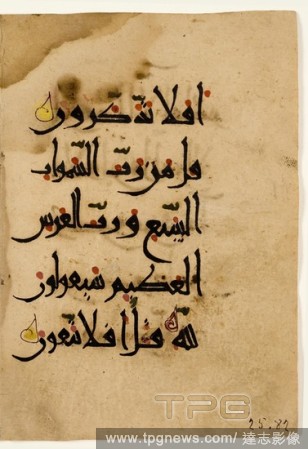 افلا تذكرون
قل من رب السموات
السبع ورب العرش
العظيم سيقولون
لله قل افلا تتقون
TPG
www.tpgnews.com/ 達志影像